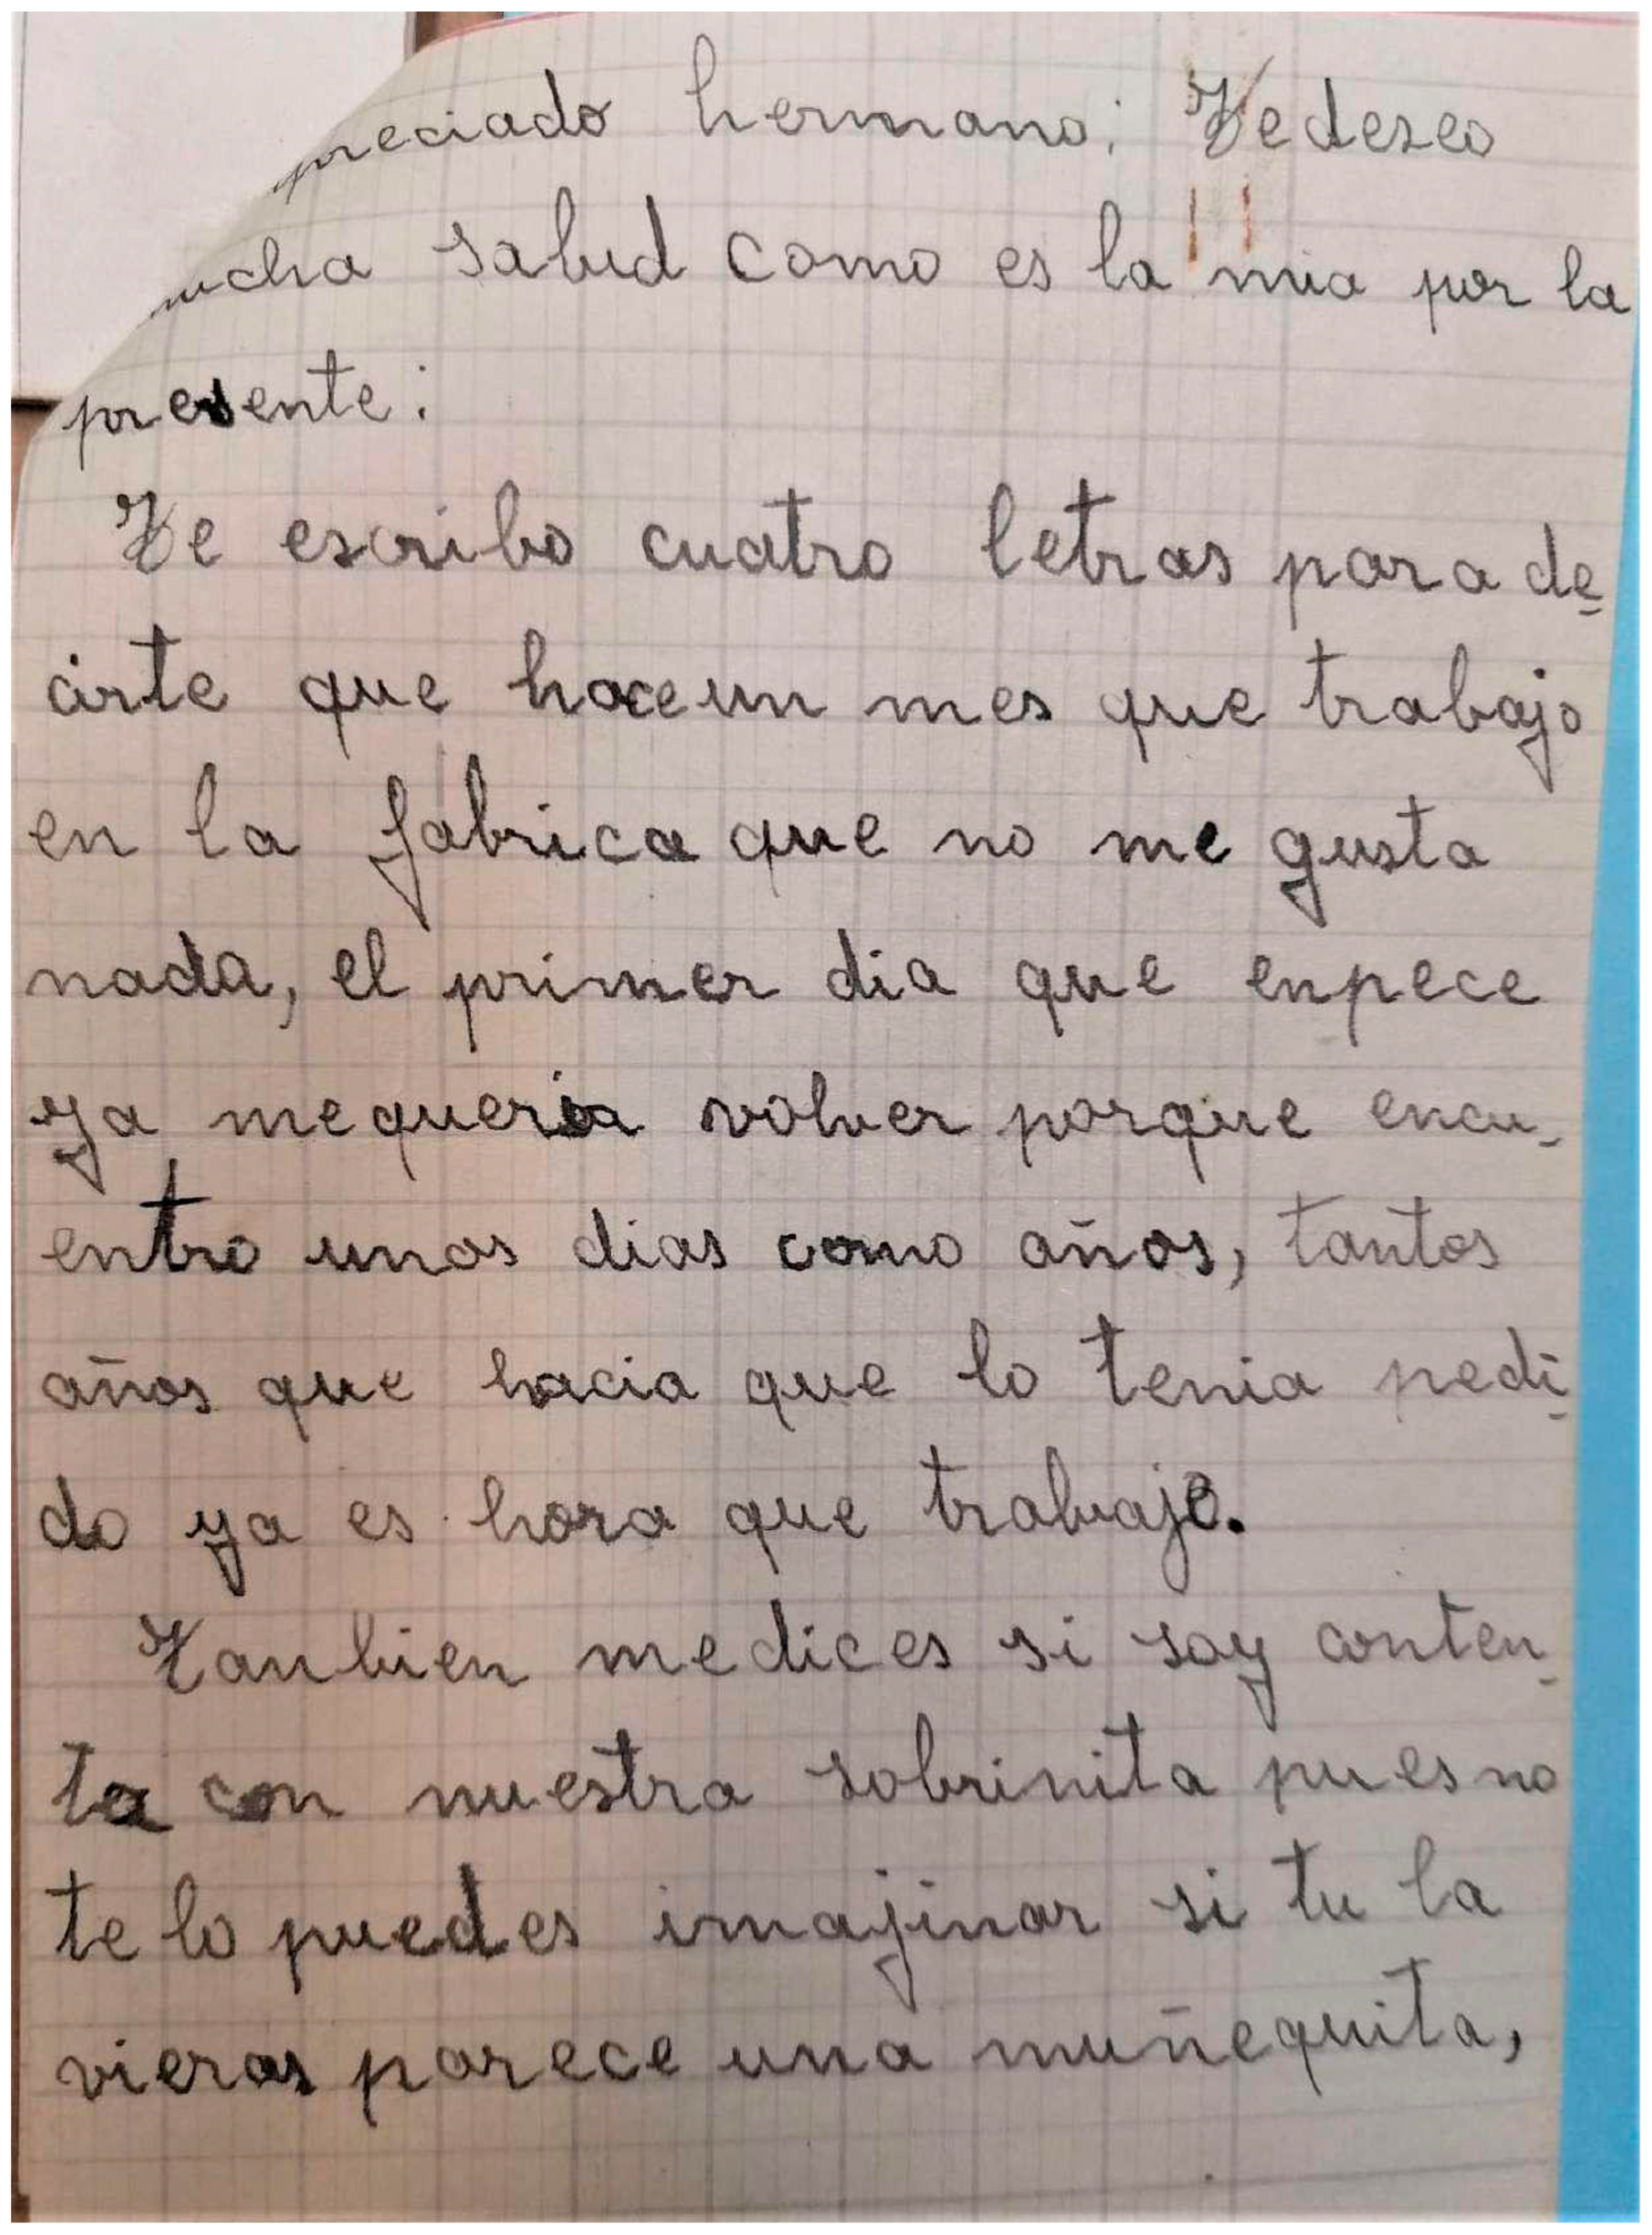 preciado hermano: Te deseo
ucha salud como es la mia por la
presente:
Te escribo cuatro letras para de-
cirte que hace un mes que trabajo
en la fabrica que no me gusta
nada, el primer dia que enpece
ya me queria volver porque encu-
entro unos dias como años, tantos
años que hacia que lo tenia pedi-
do ya es hora que trabaje.
Tanbien me dices si soy conten-
ta con nuestra sobrinita pues no
te lo puedes imajinar si tu la
vieras parece una muñequita,